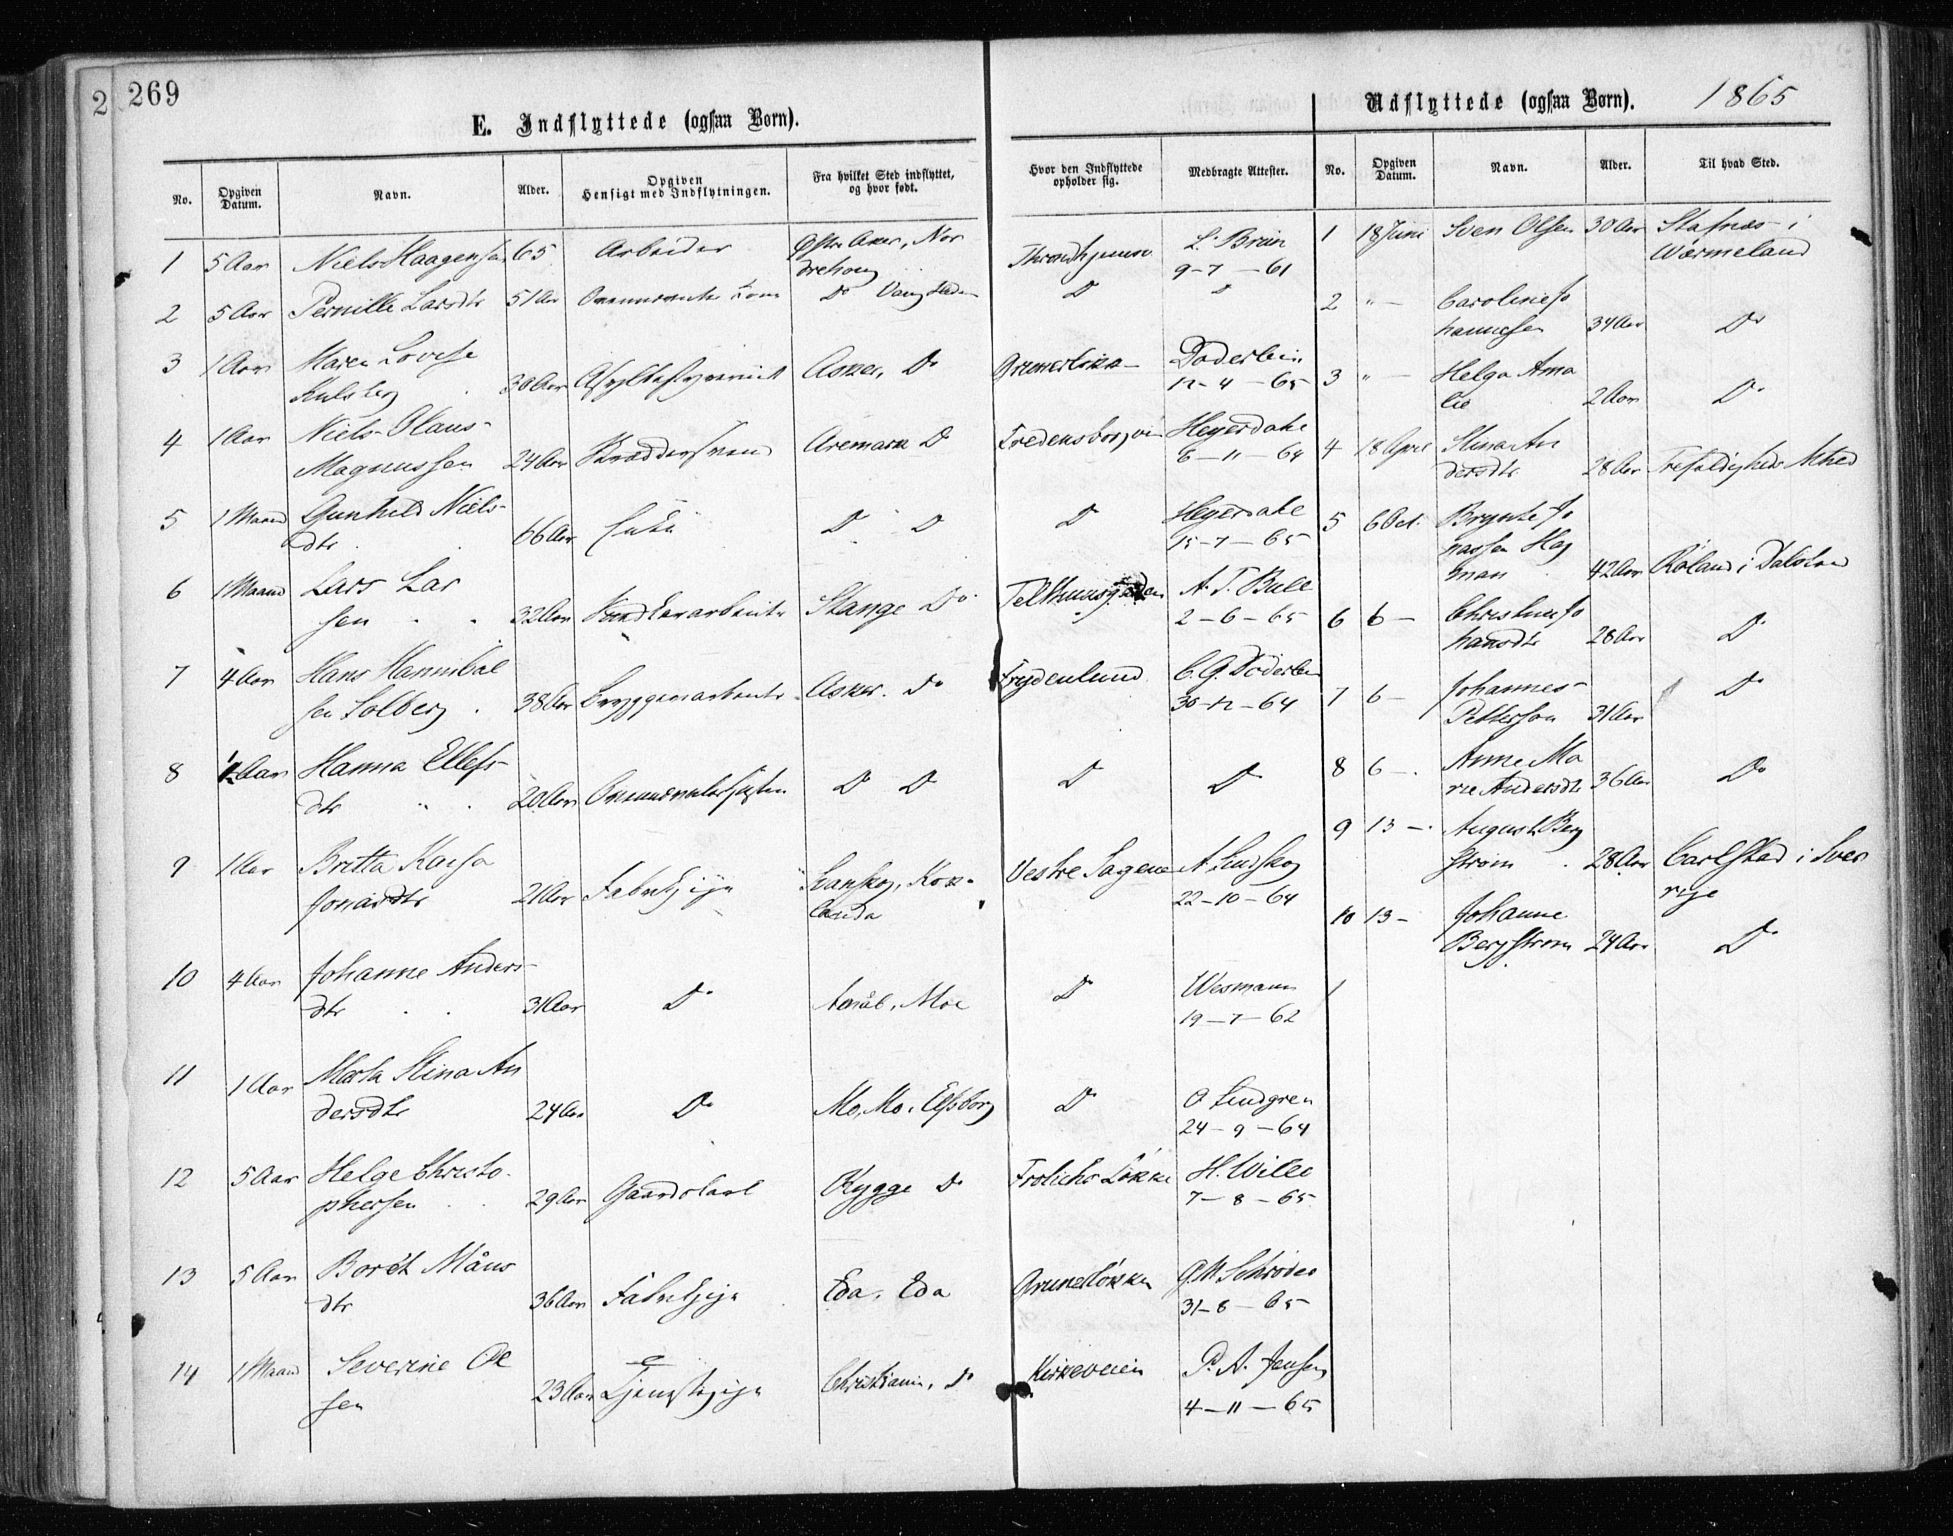 269
2
E. Indflyttede (ogsaa Børn).
Udflyttede (ogsaa Børn). 1865
No. Opgiven Datum. Navn. Alder. Opgiven Hensigt med Indflytningen. Fra hvilket Sted indflyttet, og hvor født. Hvor den Indflyttede opholder sig. Medbragte Attester.
1 5 Aar Niels Haagensen 65 Arbeider Østre Aker, Nor
drehoug Throndhjemsv L. Brun
9-7-61
2 5 Aar Pernille Larsdtr 51 Aar Do Vang Do Do
3 1 Aar Maren Lovise
30 Aar Asker, Do Grunerløkk- Døderlein
12-4-65
4 1 Aar Niels Olaus
Magnussen 24 Aar Skræddersvend Aremark Do Fredensborgvei Heyerdahl
6-11-64
5 1 Maaned Gunhild Niels-
dtr 66 Aar Enke Do Do Do Heyerdahl
15-7-65
6 1 Maaned Lars Lar
sen 32 Aar Stange Do Telthusgaden A. T. Bull
2-6-65
7 4 Aar Hans Hannibal
sen Solberg 38 Aar Bryggeriarbeider Asker. Do Frydenlund C. G. Døderlein
30-12-64
8 1/2 Aar Hanna Ellefs-
dtr 20 Aar Do Do Do Do
9 1 Aar Britta Kaisa
Jonasdtr 21 Aar Fabrikpige Kox-
landa Vestre Sagene A. Lindskog
22-10-64
10 4 Aar Johanne Anders-
dtr 31 Aar Do Åmål, Moe Do Wesmann
19-7-62
11 1 Aar Marta Stina An
dersdtr 24 Aar Do Mo, Mo. Elfsborg Do O Lindgren
24-9-64
12 5 Aar Helge Christo-
phersen 29 Aar Gaardskarl Rygge Do Frølichs Løkke H. Wille
7-8-65
13 5 Aar Borét Måns
dtr 36 Aar Fabrikpige Eda, Eda Grunerløkken G. M. Schrøder
31-8-65
14 1 Maaned Severine Ol
sen 23 Aar Tjenestepige Christiania, Do Kirkeveien P. A. Jensen
4-11-65
No. Opgiven Datum. Navn. Alder. Til hvad Sted.
1 18 Juni Sven Olsen 30 Aar Stafnæs i
Wærmeland
2 " - Caroline Jo
hannesen 34 Aar Do
3 " - Helga Ama
lie 2 Aar Do
4 18 April Stina An
dersdtr 28 Aar Trefoldigheds Mhed
5 6 Oct. Brynte Jo
nassen Hag
man 42 Aar Røland i Dalsland
6 6 - Christine Jo
hansdtr 28 Aar Do
7 6 - Johannes
Petterson 31 Aar Do
8 6 - Anne Ma
rie Andersdtr 36 Aar Do
9 13 - August Berg
strøm 28 Aar Carlstad i Sver
rige
10 13 - Johanne
Bergstrøm 24 Aar Do